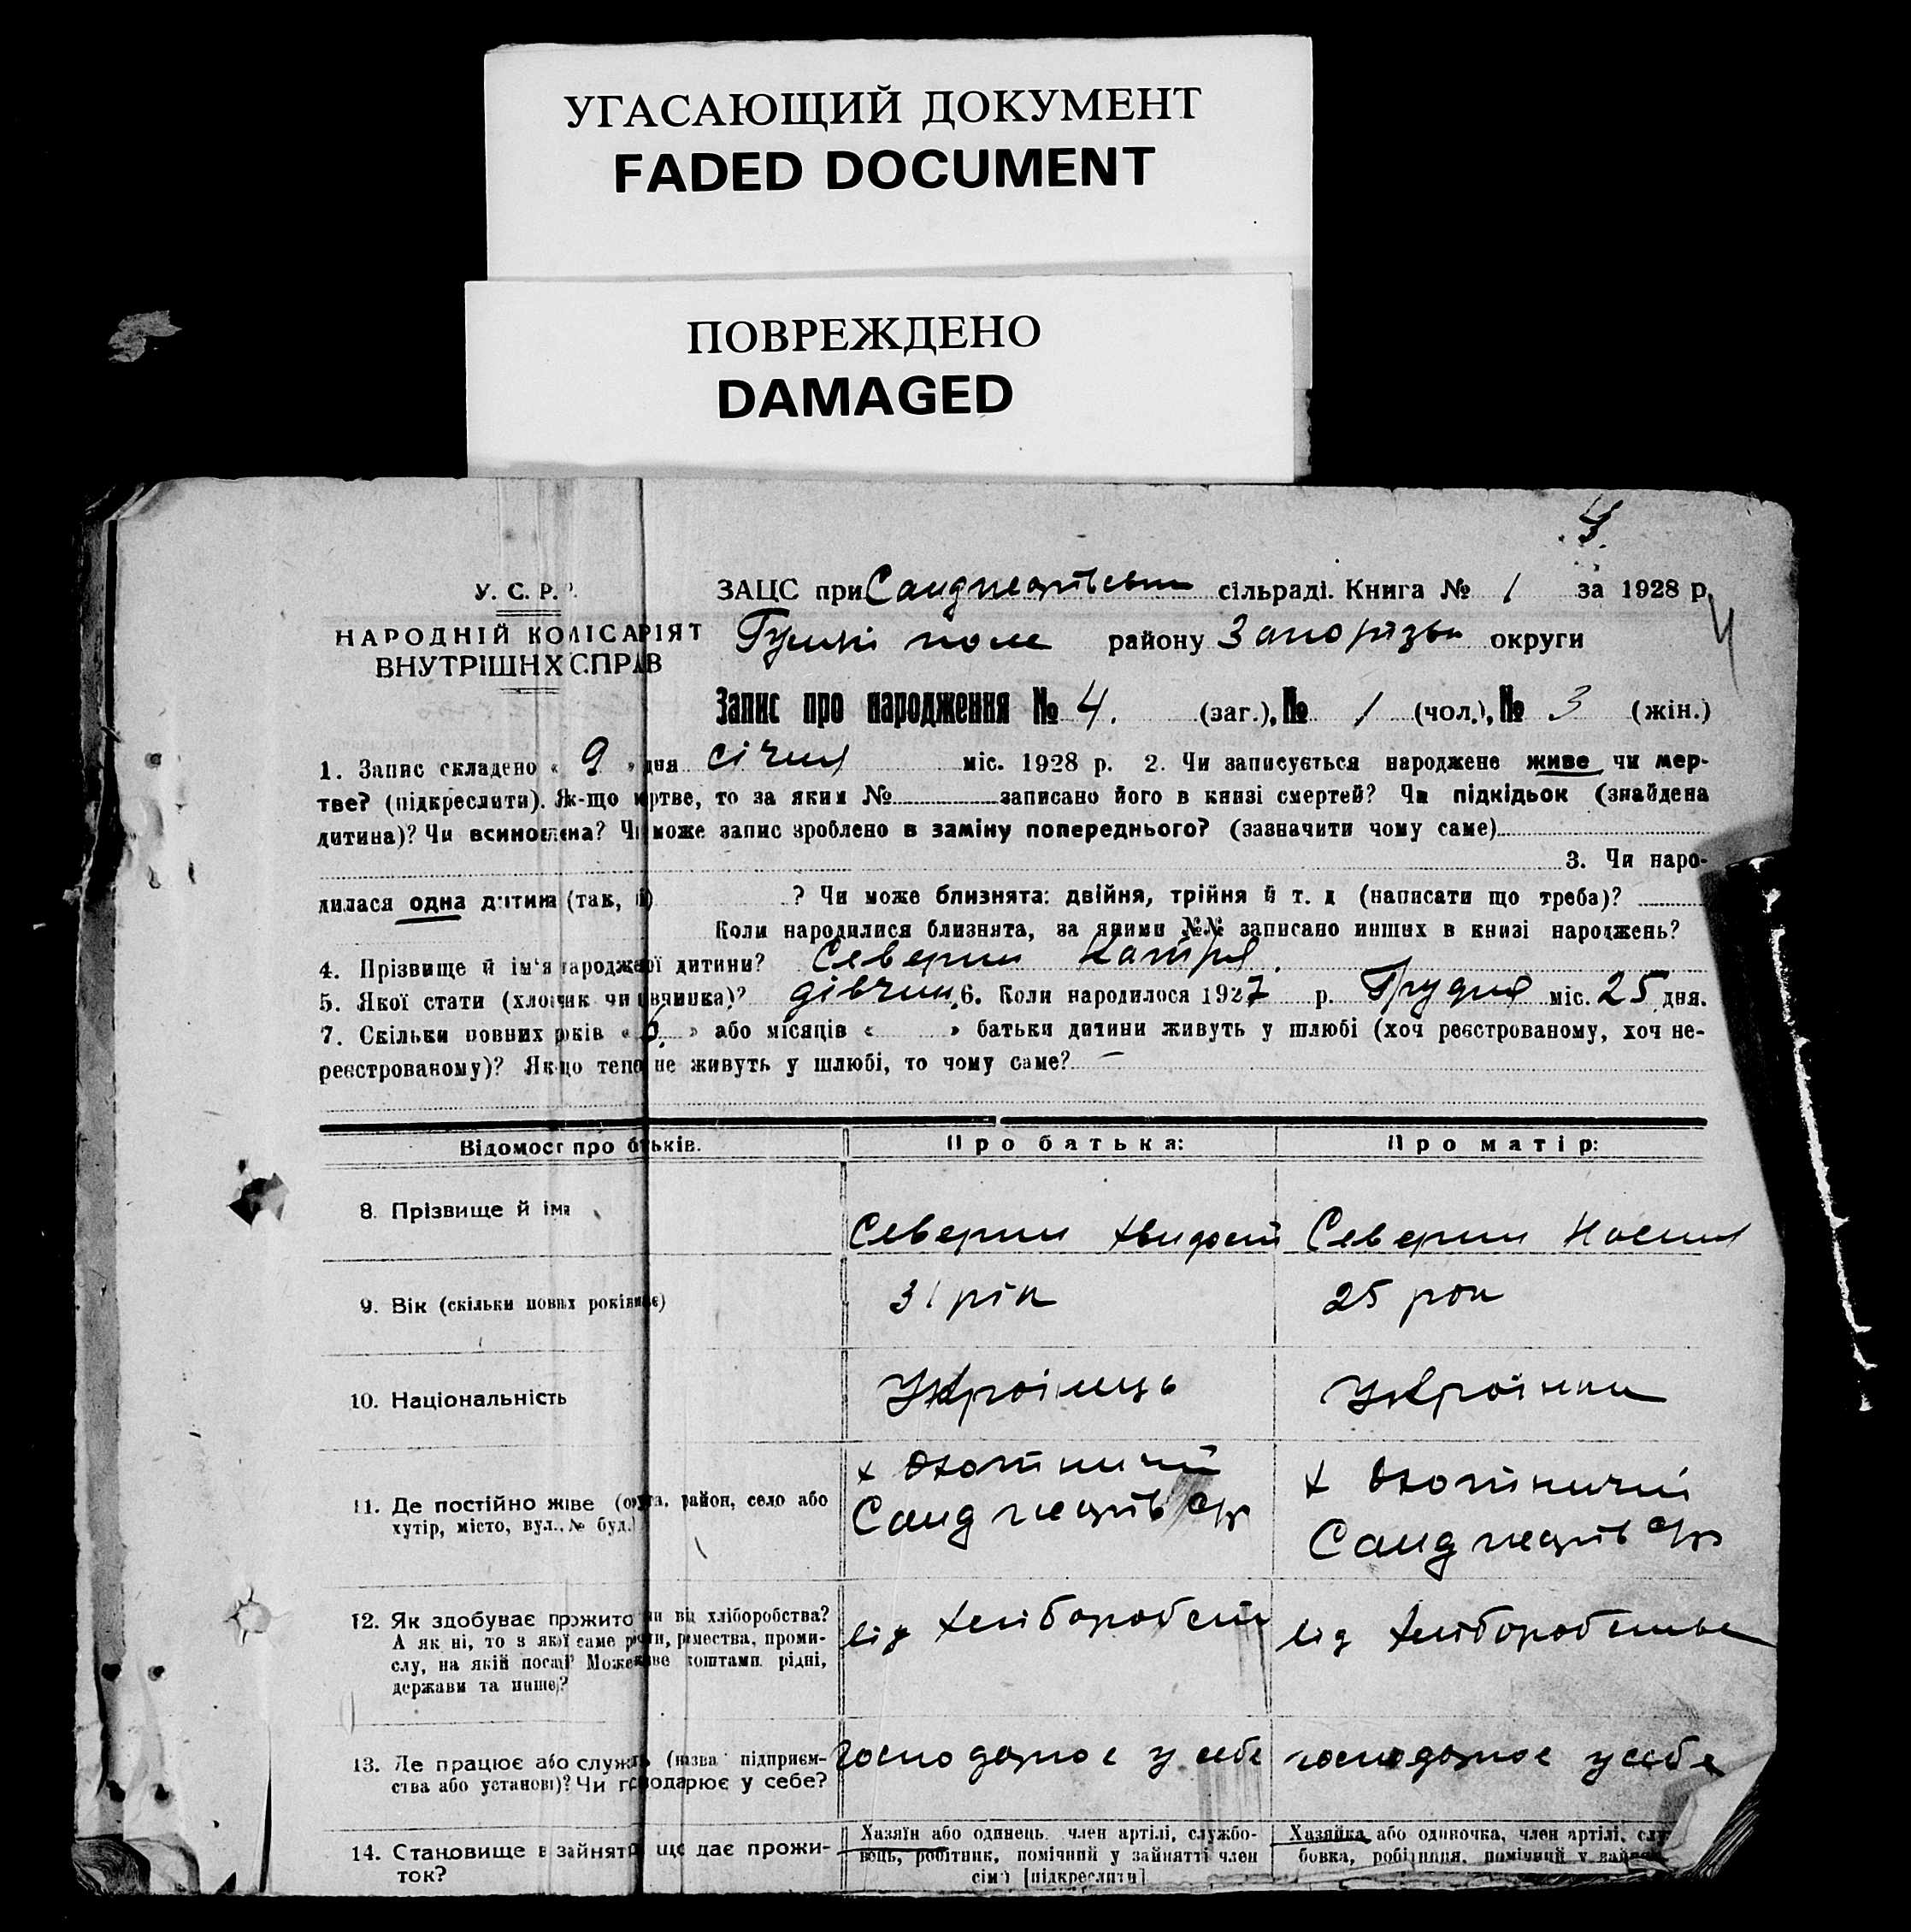 УГАСАЮЩИЙ ДОКУМЕНТ
FADED DOCUMENT
ПОВРЕЖДЕНО
DAMAGED
У. С. Р. Р.
НАРОДНІЙ КОМІСАРІЯТ
ВНУТРІШНХ СПРАВ
ЗАЦС при сільраді. Книга № 1 за 1928 р.
поле району округи
4
Запис про народження № 4. (заг.), № 1 (чол.), № 3 (жін.)
1. Запис складено « 9 » дня січня міс. 1928 р. 2. Чи записується народжене живе чи мер-
тве? (підкреслити). Як-що мертве, то за яким № записано його в книзі смертей? Чи підкідьок (знайдена
дитина)? Чи всиновлена? Чи може запис зроблено в заміну попереднього? (зазначити чому саме)
3. Чи наро-
дилася одна дитина (так, ні) ? Чи може близнята: двійня, трійня й т. д (написати що треба)?
Коли народилися близнята, за якими №№ записано инших в книзі народжень?
4. Прізвище й ім'я народженої дитини? Северин Катря.
5. Якої стати (хлопчик чи дівчинка)? дівчин. 6. Коли народилося 1927 р. Грудня міс. 25 дня.
7. Скільки повних років « 6 » або місяців « » батьки дитини живуть у шлюбі (хоч реєстрованому, хоч не-
реєстрованому)? Якщо тепер не живуть у шлюбі, то чому саме? —
Відомост про батьків.
Про батька:
Про матір:
8. Прізвище й імя
Северин
Северин
9. Вік (скільки повних років має)
31 рік
25 рок
10. Національність
Украінець
Украінка
11. Де постійно живе (округа, район, село або
хутір, місто, вул., № буд.)
х Охотничий
х Охотничий
12. Як здобуває прожиток чи від хліборобства?
А як ні, то з якої саме речи, ремества, проми-
слу, на якій посаді? Може живе коштами рідні,
держави та инше?
від хліборобств
від хліборобства
13. Де працює або служить (назва підприєм-
ства або установи)? Чи господарює у себе?
господарює у себе
господарює у себе
14. Становище в зайнятті що дає прожи-
ток?
Хазяїн або одинець, член артілі, службо-
вець, робітник, помічний у зайнятті член
сім'ї [підкреслити]
Хазяйка або одиночка, член артілі, слу
бовка, робітниця, помічний у зайня